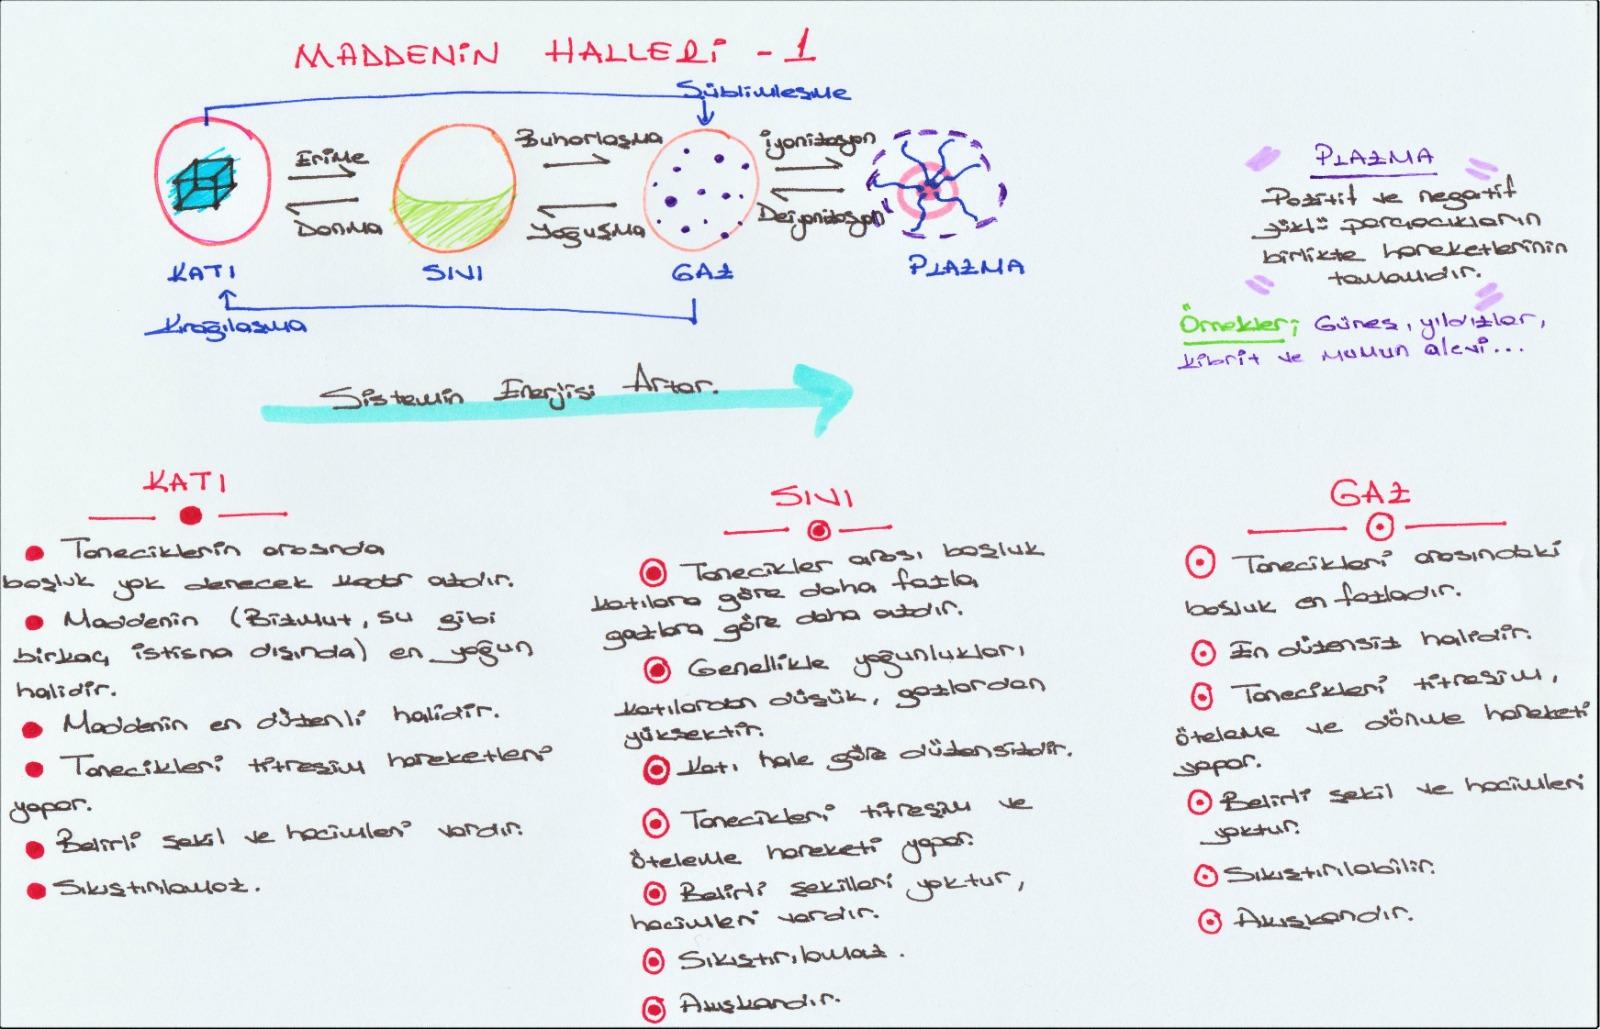 MADDENİN HALLERİ - 1
Süblimleşme
Erime
Buharlaşma
İyonizasyon
Donma
Yoğuşma
Deiyonizasyon
KATI
SIVI
GAZ
PLAZMA
Kırağılaşma
Sistemin Enerjisi Artar.
PLAZMA
Pozitif ve negatif
yüklü parçacıkların
birlikte hareketlerinin
tamamıdır.
Örnekler; Güneş, yıldızlar,
kibrit ve mumun alevi...
KATI
Taneciklerin arasında
boşluk yok denecek kadar azdır.
Maddenin (Bizmut, su gibi
birkaç istisna dışında) en yoğun
halidir.
Maddenin en düzenli halidir.
Tanecikleri titreşim hareketleri
yapar.
Belirli şekil ve hacimleri vardır.
Sıkıştırılamaz.
SIVI
Tanecikler arası boşluk
katılara göre daha fazla,
gazlara göre daha azdır.
Genellikle yoğunlukları
katılardan düşük, gazlardan
yüksektir.
Katı hale göre düzensizdir.
Tanecikleri titreşim ve
öteleme hareketi yapar.
Belirli şekilleri yoktur,
hacimleri vardır.
Sıkıştırılamaz.
Akışkandır.
GAZ
Tanecikleri arasındaki
boşluk en fazladır.
En düzensiz halidir.
Tanecikleri titreşim,
öteleme ve dönme hareketi
yapar.
Belirli şekil ve hacimleri
yoktur.
Sıkıştırılabilir.
Akışkandır.